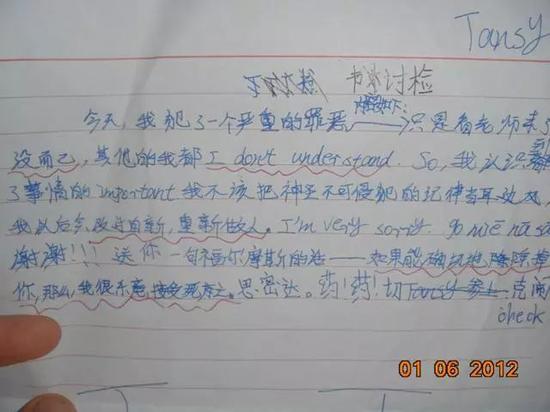 Tansy
书面讨检
今天,我犯了一个严重的罪恶——内容如下:只是看老师来了
没而已,其他的我都 I don't understand. So,我认识到
了事情的 important 我不该把神圣不可侵犯的纪律当耳边风,
我以后会改过自新,重新做人。I'm very sorry. go mie na sai
谢谢!!!送你一句福尔摩斯的话——如果能确切地除掉
你,那么,我很乐意接受死亡。思密达。药!药!切
check
01 06 2012